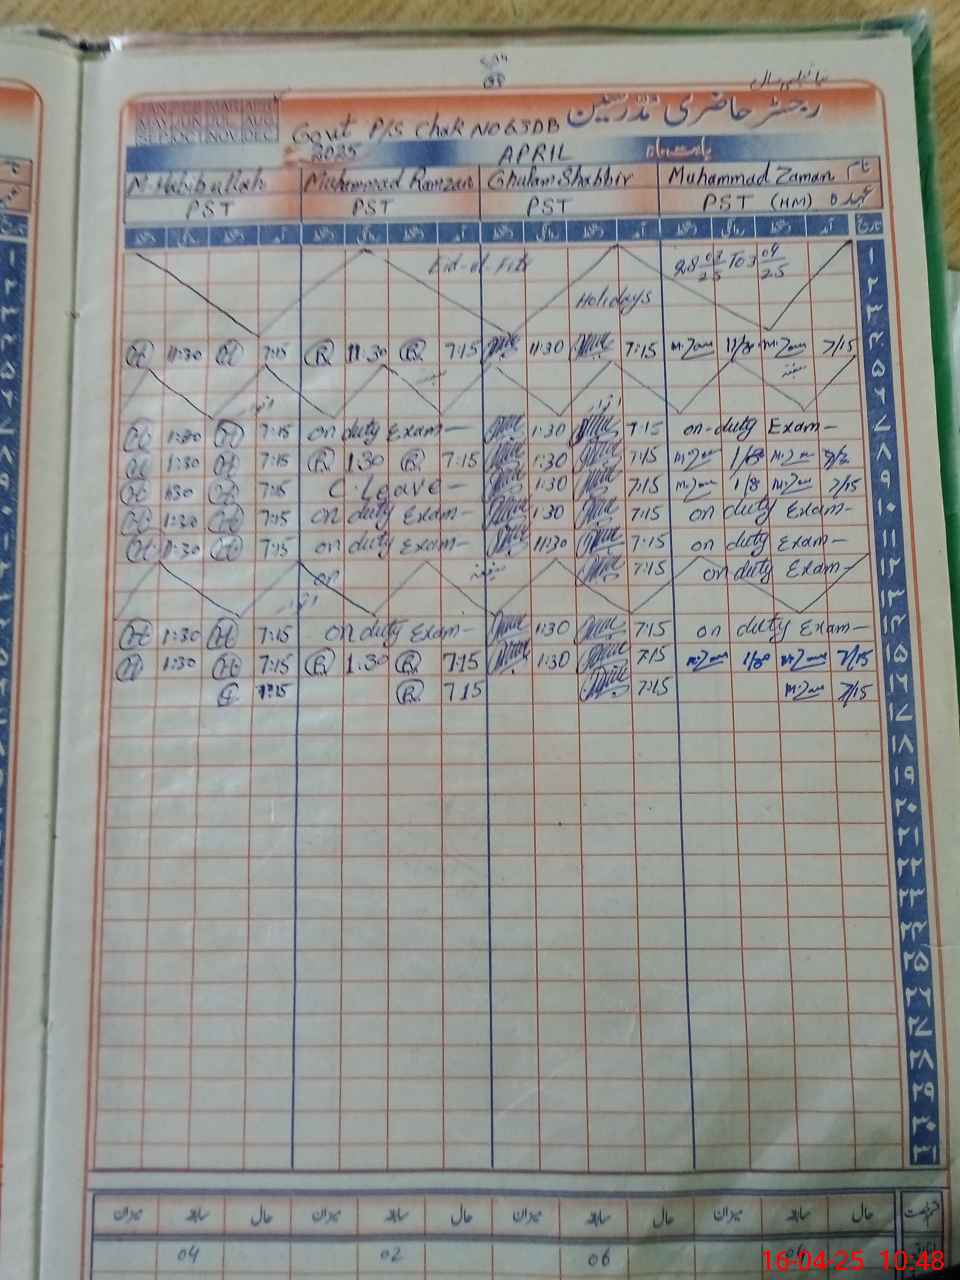 JAN FEB MAR APR
MAY JUN JUL AUG
SEP OCT NOV DEC
رجسٹر حاضری مدرسین
Govt P/S Chak NO 63DB
2025 APRIL بابت ماہ
M. Habib ullah Muhammad Ramzan Ghulam Shabbir Muhammad Zaman نام
PST PST PST PST (HM) عہدہ
دستخط روانگی دستخط آمد دستخط روانگی دستخط آمد دستخط روانگی دستخط آمد دستخط روانگی دستخط آمد تاریخ
۱
Eid-ul-Fitr 28 03/25 To 3 04/25 ۲
Holidays ۳
H 11:30 H 7:15 R 11:30 R 7:15 11:30 7:15 M.Zam 11/30 M.Zam 7/15 ۴
ہفتہ ہفتہ ۵
اتوار اتوار ۶
H 1:30 H 7:15 on duty Exam— 1:30 7:15 on duty Exam— ۷
H 1:30 H 7:15 R 1:30 R 7:15 1:30 7:15 M.Zam M.Zam ۸
H 1:30 H 7:15 C. Leave— 1:30 7:15 M.Zam M.Zam 7/15 ۹
H 1:30 H 7:15 on duty Exam— 1:30 7:15 on duty Exam— ۱۰
H 11:30 H 7:15 on duty Exam— 11:30 7:15 on duty Exam— ۱۱
on ہفتہ 7:15 on duty Exam— ۱۲
اتوار ۱۳
H 1:30 H 7:15 on duty Exam— 1:30 7:15 on duty Exam— ۱۴
H 1:30 H 7:15 R 1:30 R 7:15 1:30 7:15 M.Zam 1/30 M.Zam 7/15 ۱۵
7:15 R 7:15 7:15 M.Zam 7/15 ۱۶
۱۷
۱۸
۱۹
۲۰
۲۱
۲۲
۲۳
۲۴
۲۵
۲۶
۲۷
۲۸
۲۹
۳۰
۳۱
میزان سابقہ حال میزان سابقہ حال میزان سابقہ حال میزان سابقہ حال قسم رخصت
04 02 06
16-04-25 10:48